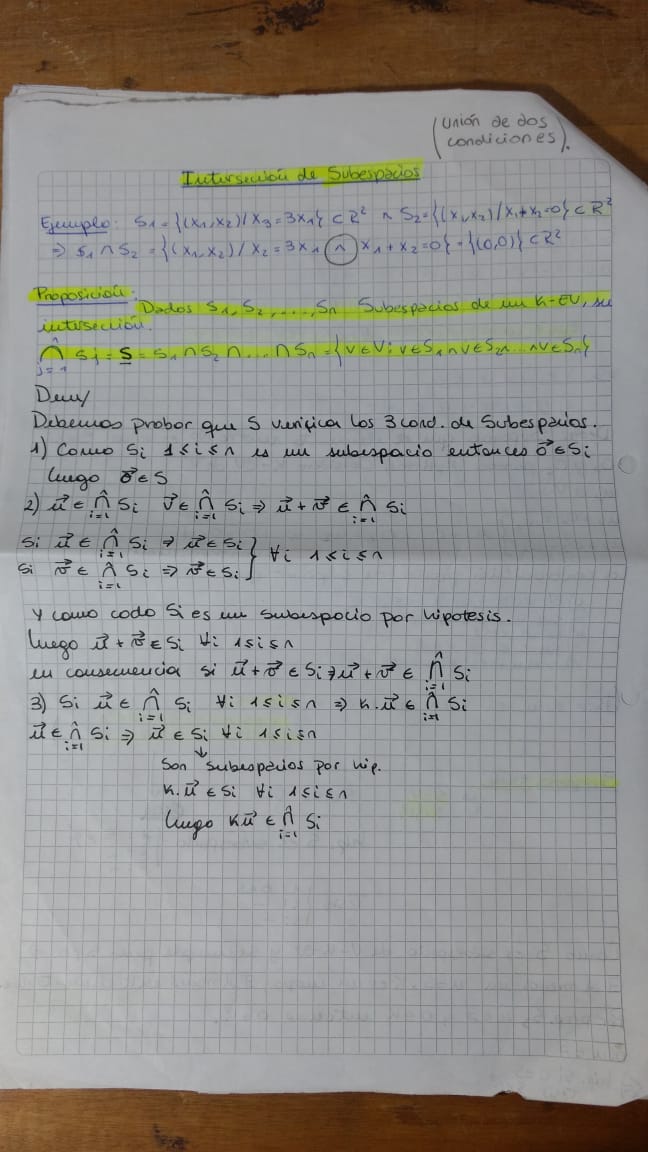 (Unión de dos
condiciones).
Intersección de Subespacios
Ejemplo: S₁ = {(x₁,x₂) / x₃ = 3x₁} ⊂ R² ∧ S₂ = {(x₁,x₂) / x₁+x₂=0} ⊂ R²
⇒ S₁ ∩ S₂ = {(x₁,x₂) / x₂ = 3x₁ ∧ x₁ + x₂ = 0} = {(0,0)} ⊂ R²
Proposición: Dados S₁, S₂, ..., Sn Subespacios de un K-EV, su
intersección.
⋂ⁿⱼ₌₁ Sj = S = S₁ ∩ S₂ ∩ ... ∩ Sn = {v ∈ V: v ∈ S₁ ∧ v ∈ S₂ ∧ ... ∧ v ∈ Sn}
Dem/
Debemos probar que S verifica las 3 cond. de Subespacios.
1) Como Si 1≤i≤n es un subespacio entonces 0⃗ ∈ Si
luego 0⃗ ∈ S
2) u⃗ ∈ ⋂ⁿᵢ₌₁ Si v⃗ ∈ ⋂ⁿᵢ₌₁ Si ⇒ u⃗ + v⃗ ∈ ⋂ⁿᵢ₌₁ Si
Si u⃗ ∈ ⋂ⁿᵢ₌₁ Si ⇒ u⃗ ∈ Si } ∀i 1≤i≤n
Si v⃗ ∈ ⋂ⁿᵢ₌₁ Si ⇒ v⃗ ∈ Si
Y como cada Si es un subespacio por hipotesis.
luego u⃗ + v⃗ ∈ Si ∀i 1≤i≤n
en consecuencia si u⃗ + v⃗ ∈ Si ⇒ u⃗ + v⃗ ∈ ⋂ⁿᵢ₌₁ Si
3) Si u⃗ ∈ ⋂ⁿᵢ₌₁ Si ∀i 1≤i≤n ⇒ k.u⃗ ∈ ⋂ⁿᵢ₌₁ Si
u⃗ ∈ ⋂ⁿᵢ₌₁ Si ⇒ u⃗ ∈ Si ∀i 1≤i≤n
↓
Son subespacios por hip.
k.u⃗ ∈ Si ∀i 1≤i≤n
luego ku⃗ ∈ ⋂ⁿᵢ₌₁ Si